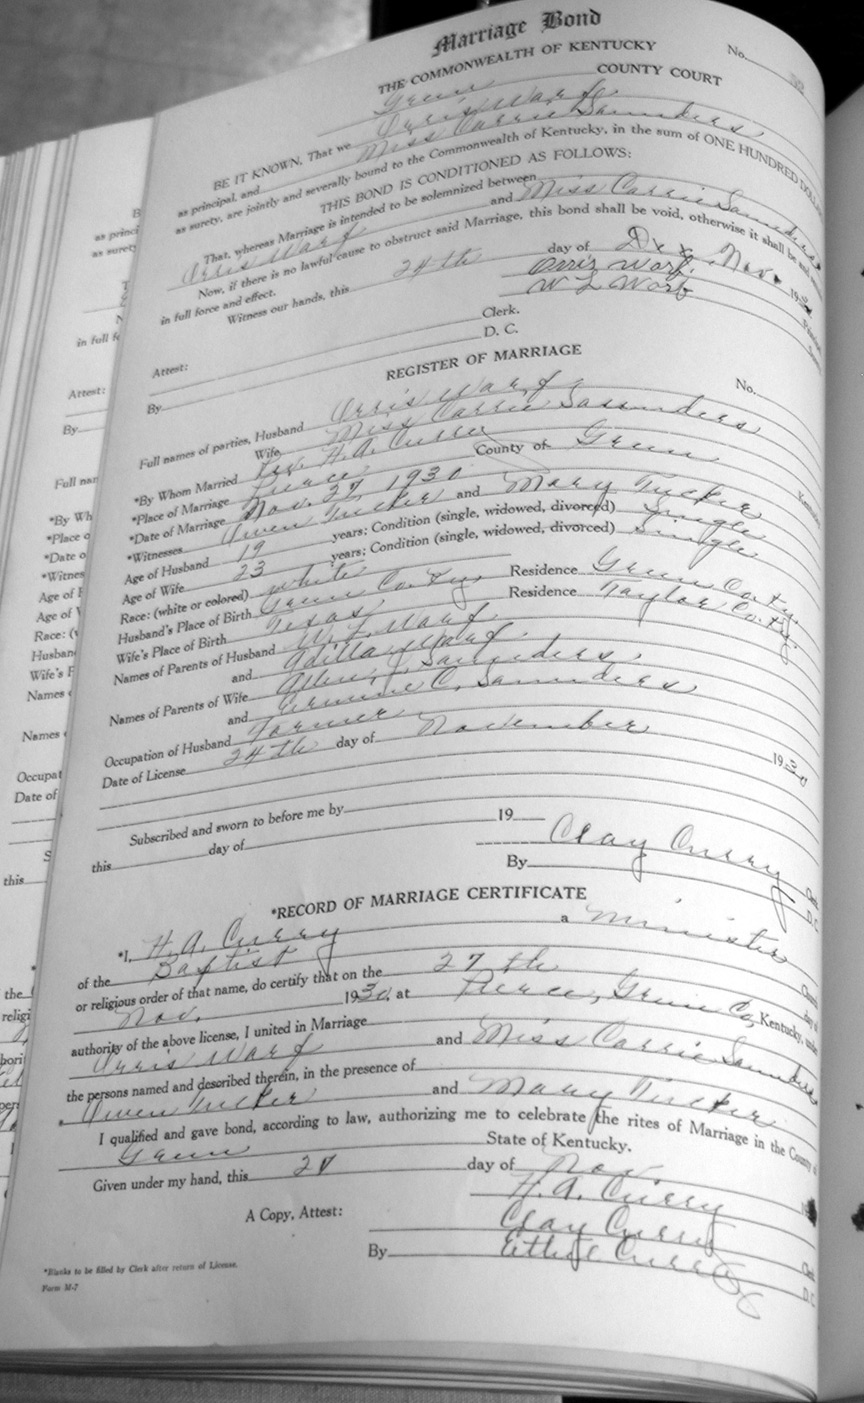 Marriage Bond
No.
THE COMMONWEALTH OF KENTUCKY
Green COUNTY COURT
BE IT KNOWN, That we Orris Warf
as principal, and Miss Carrie Saunders
as surety, are jointly and severally bound to the Commonwealth of Kentucky, in the sum of ONE HUNDRED DOLLARS
THIS BOND IS CONDITIONED AS FOLLOWS:
That, whereas Marriage is intended to be solemnized between
Orris Warf and Miss Carrie Saunders
Now, if there is no lawful cause to obstruct said Marriage, this bond shall be void, otherwise it shall be and
in full force and effect.
Witness our hands, this 24th day of Nov. 1930
Orris Warf
W L Warf
Attest: Clerk.
By D. C.
REGISTER OF MARRIAGE
No.
Full names of parties, Husband Orris Warf
Wife Miss Carrie Saunders
*By Whom Married Rev. H. A. Curry
*Place of Marriage Pierce County of Green
*Date of Marriage Nov. 27, 1930
*Witnesses Owen Tucker and Mary Tucker
Age of Husband 19 years; Condition (single, widowed, divorced) Single
Age of Wife 23 years; Condition (single, widowed, divorced) Single
Race: (white or colored) white
Husband's Place of Birth Green Co. Ky. Residence Green Co. Ky.
Wife's Place of Birth Texas Residence Taylor Co. Ky.
Names of Parents of Husband W. L. Warf
and Warf
Names of Parents of Wife Allen J. Saunders
and C. Saunders
Occupation of Husband Farmer
Date of License 24th day of November 1930
Subscribed and sworn to before me by
this day of 19
Clay Curry Clerk
By D. C.
*RECORD OF MARRIAGE CERTIFICATE
*I, H. A. Curry a minister
of the Baptist Church
or religious order of that name, do certify that on the 27th day of
Nov. 1930, at Pierce, Green Co, Kentucky, under
authority of the above license, I united in Marriage
Orris Warf and Miss Carrie Saunders
the persons named and described therein, in the presence of
Owen Tucker and Mary Tucker
I qualified and gave bond, according to law, authorizing me to celebrate the rites of Marriage in the County of
Green State of Kentucky.
Given under my hand, this day of Nov
H. A. Curry
A Copy, Attest: Clay Curry Clerk
By Curry D. C.
*Blanks to be filled by Clerk after return of License.
Form M-7